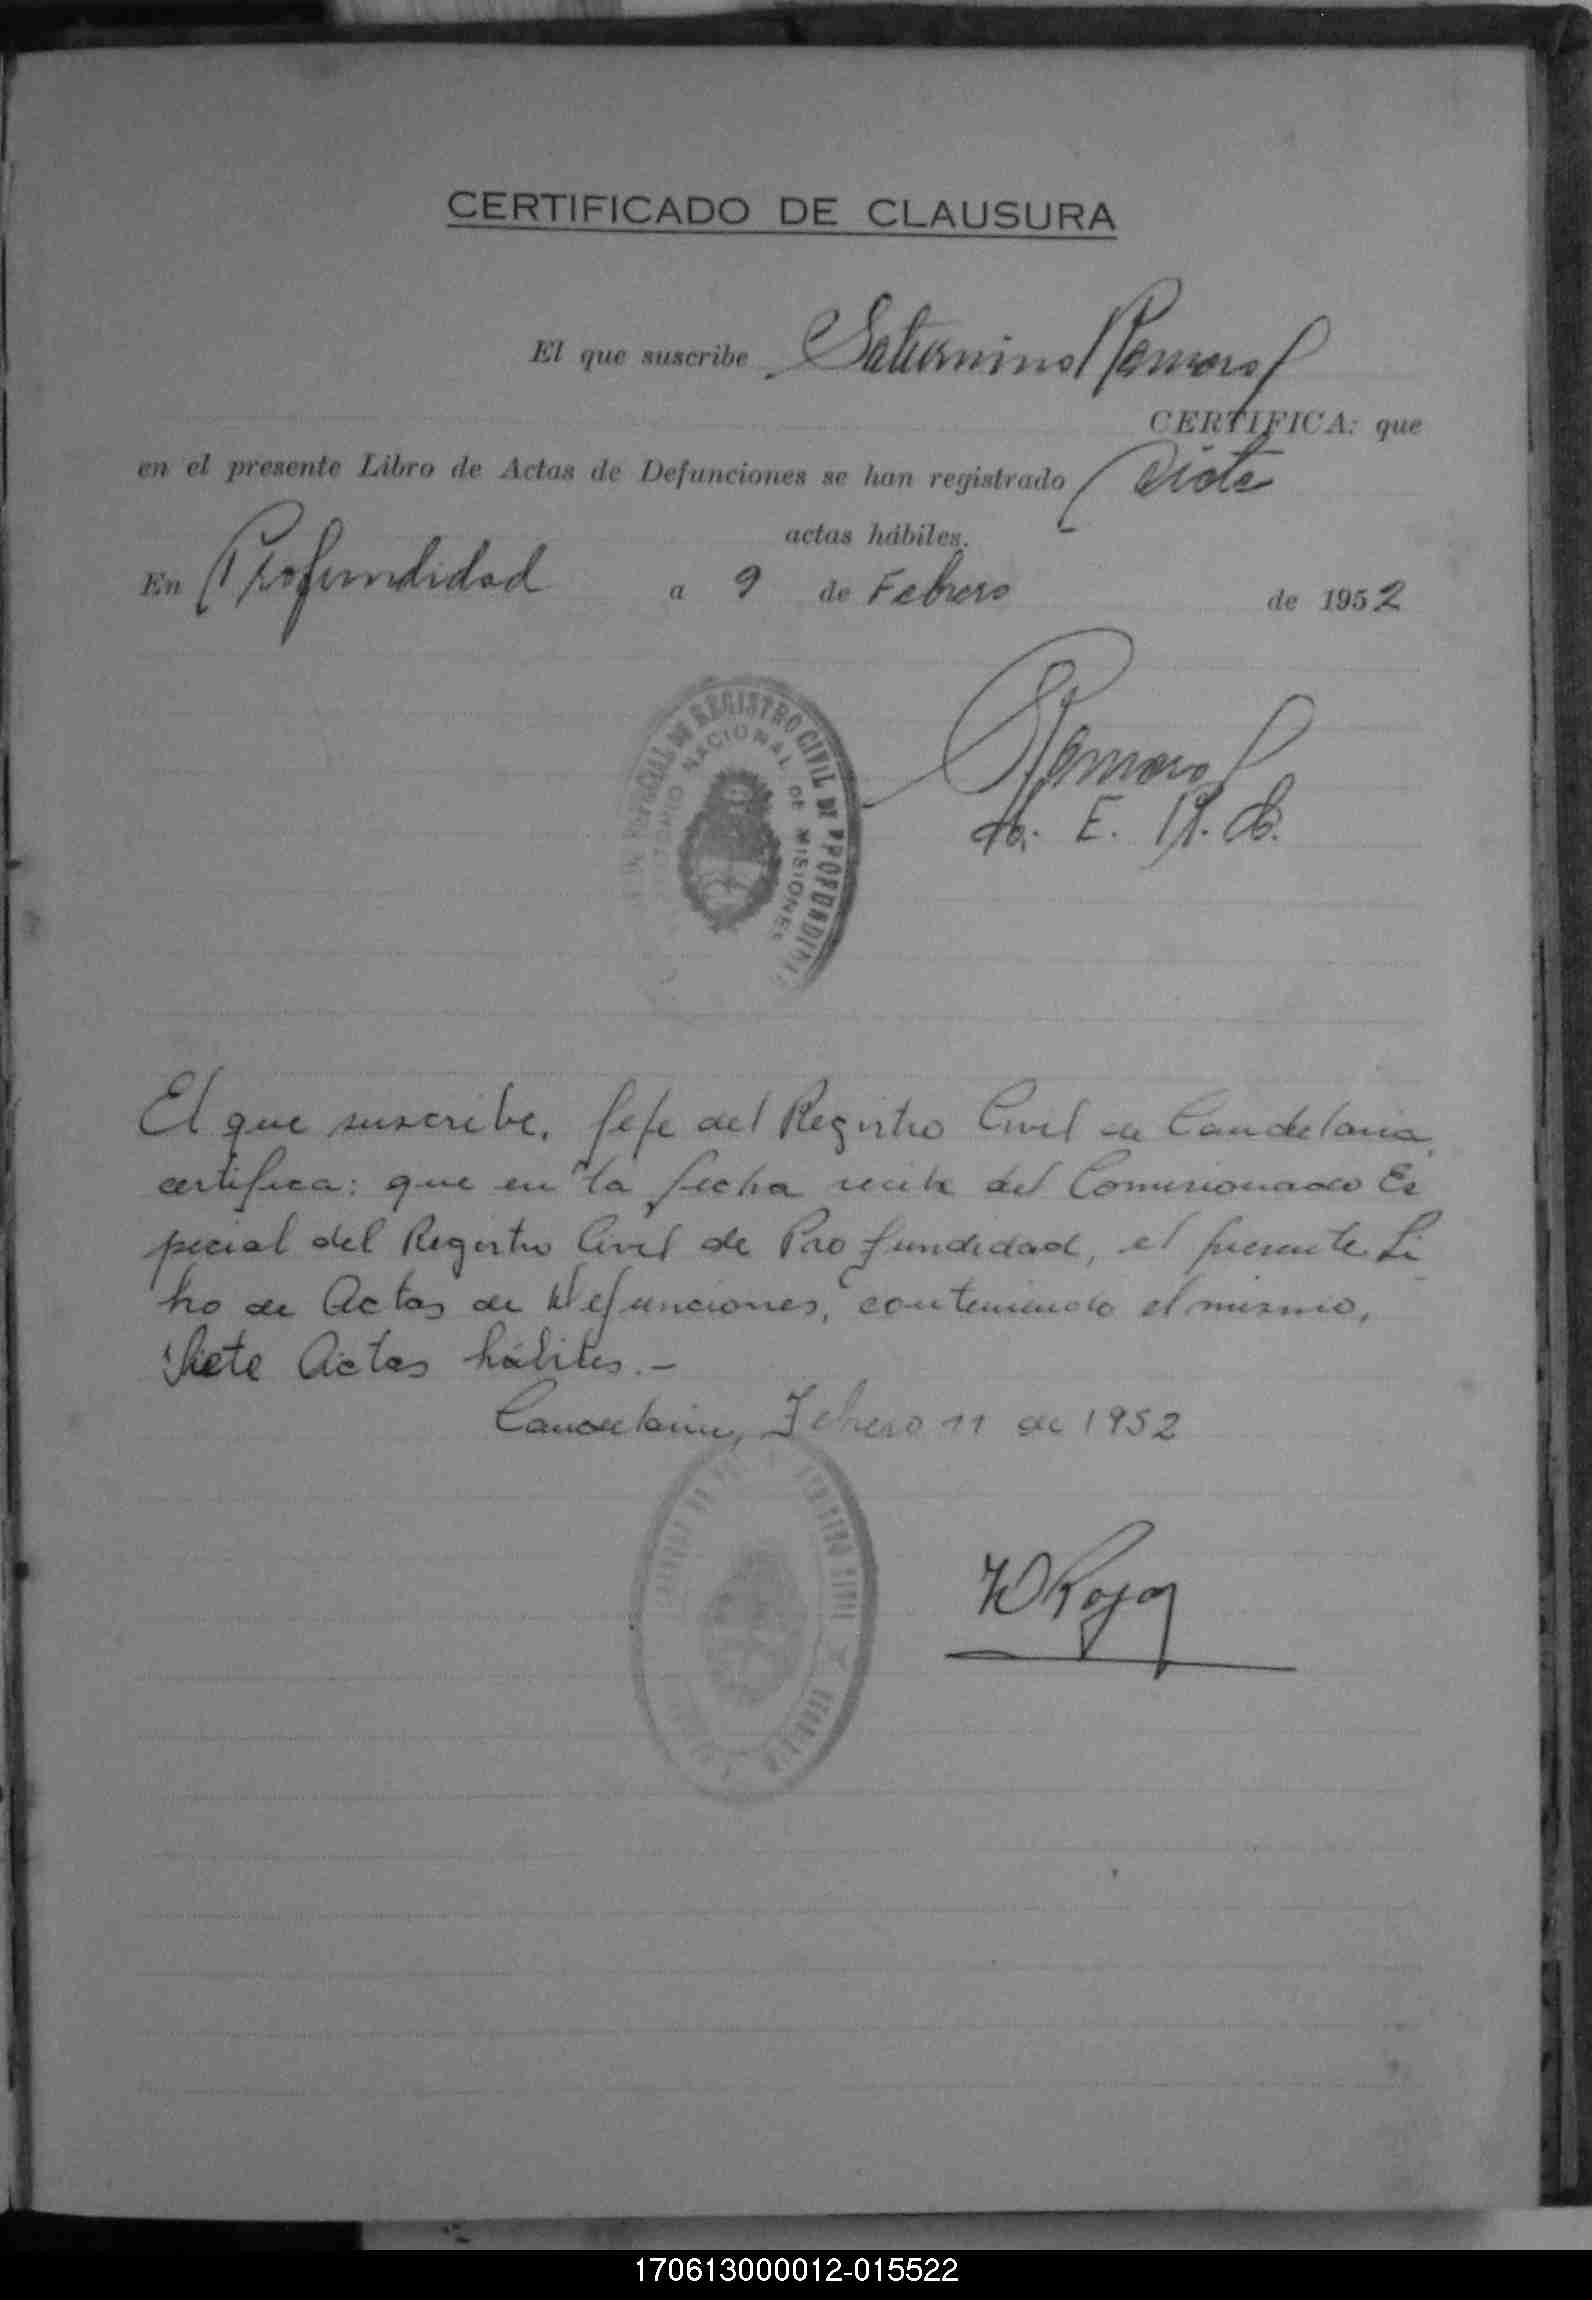 CERTIFICADO DE CLAUSURA
El que suscribe Saturnino Romero
CERTIFICA: que
en el presente Libro de Actas de Defunciones se han registrado Siete
actas hábiles.
En Profundidad a 9 de Febrero de 1952
REGISTRO CIVIL DE PROFUNDIDAD
NACIONAL DE MISIONES
Romero
E. R. C.
El que suscribe, Jefe del Registro Civil de Candelaria
certifica: que en la fecha recibe del Comisionado Es
pecial del Registro Civil de Profundidad, el presente Li
bro de Actas de Defunciones, conteniendo el mismo,
Siete Actas hábiles.-
Candelaria, Febrero 11 de 1952
Rojas
170613000012-015522